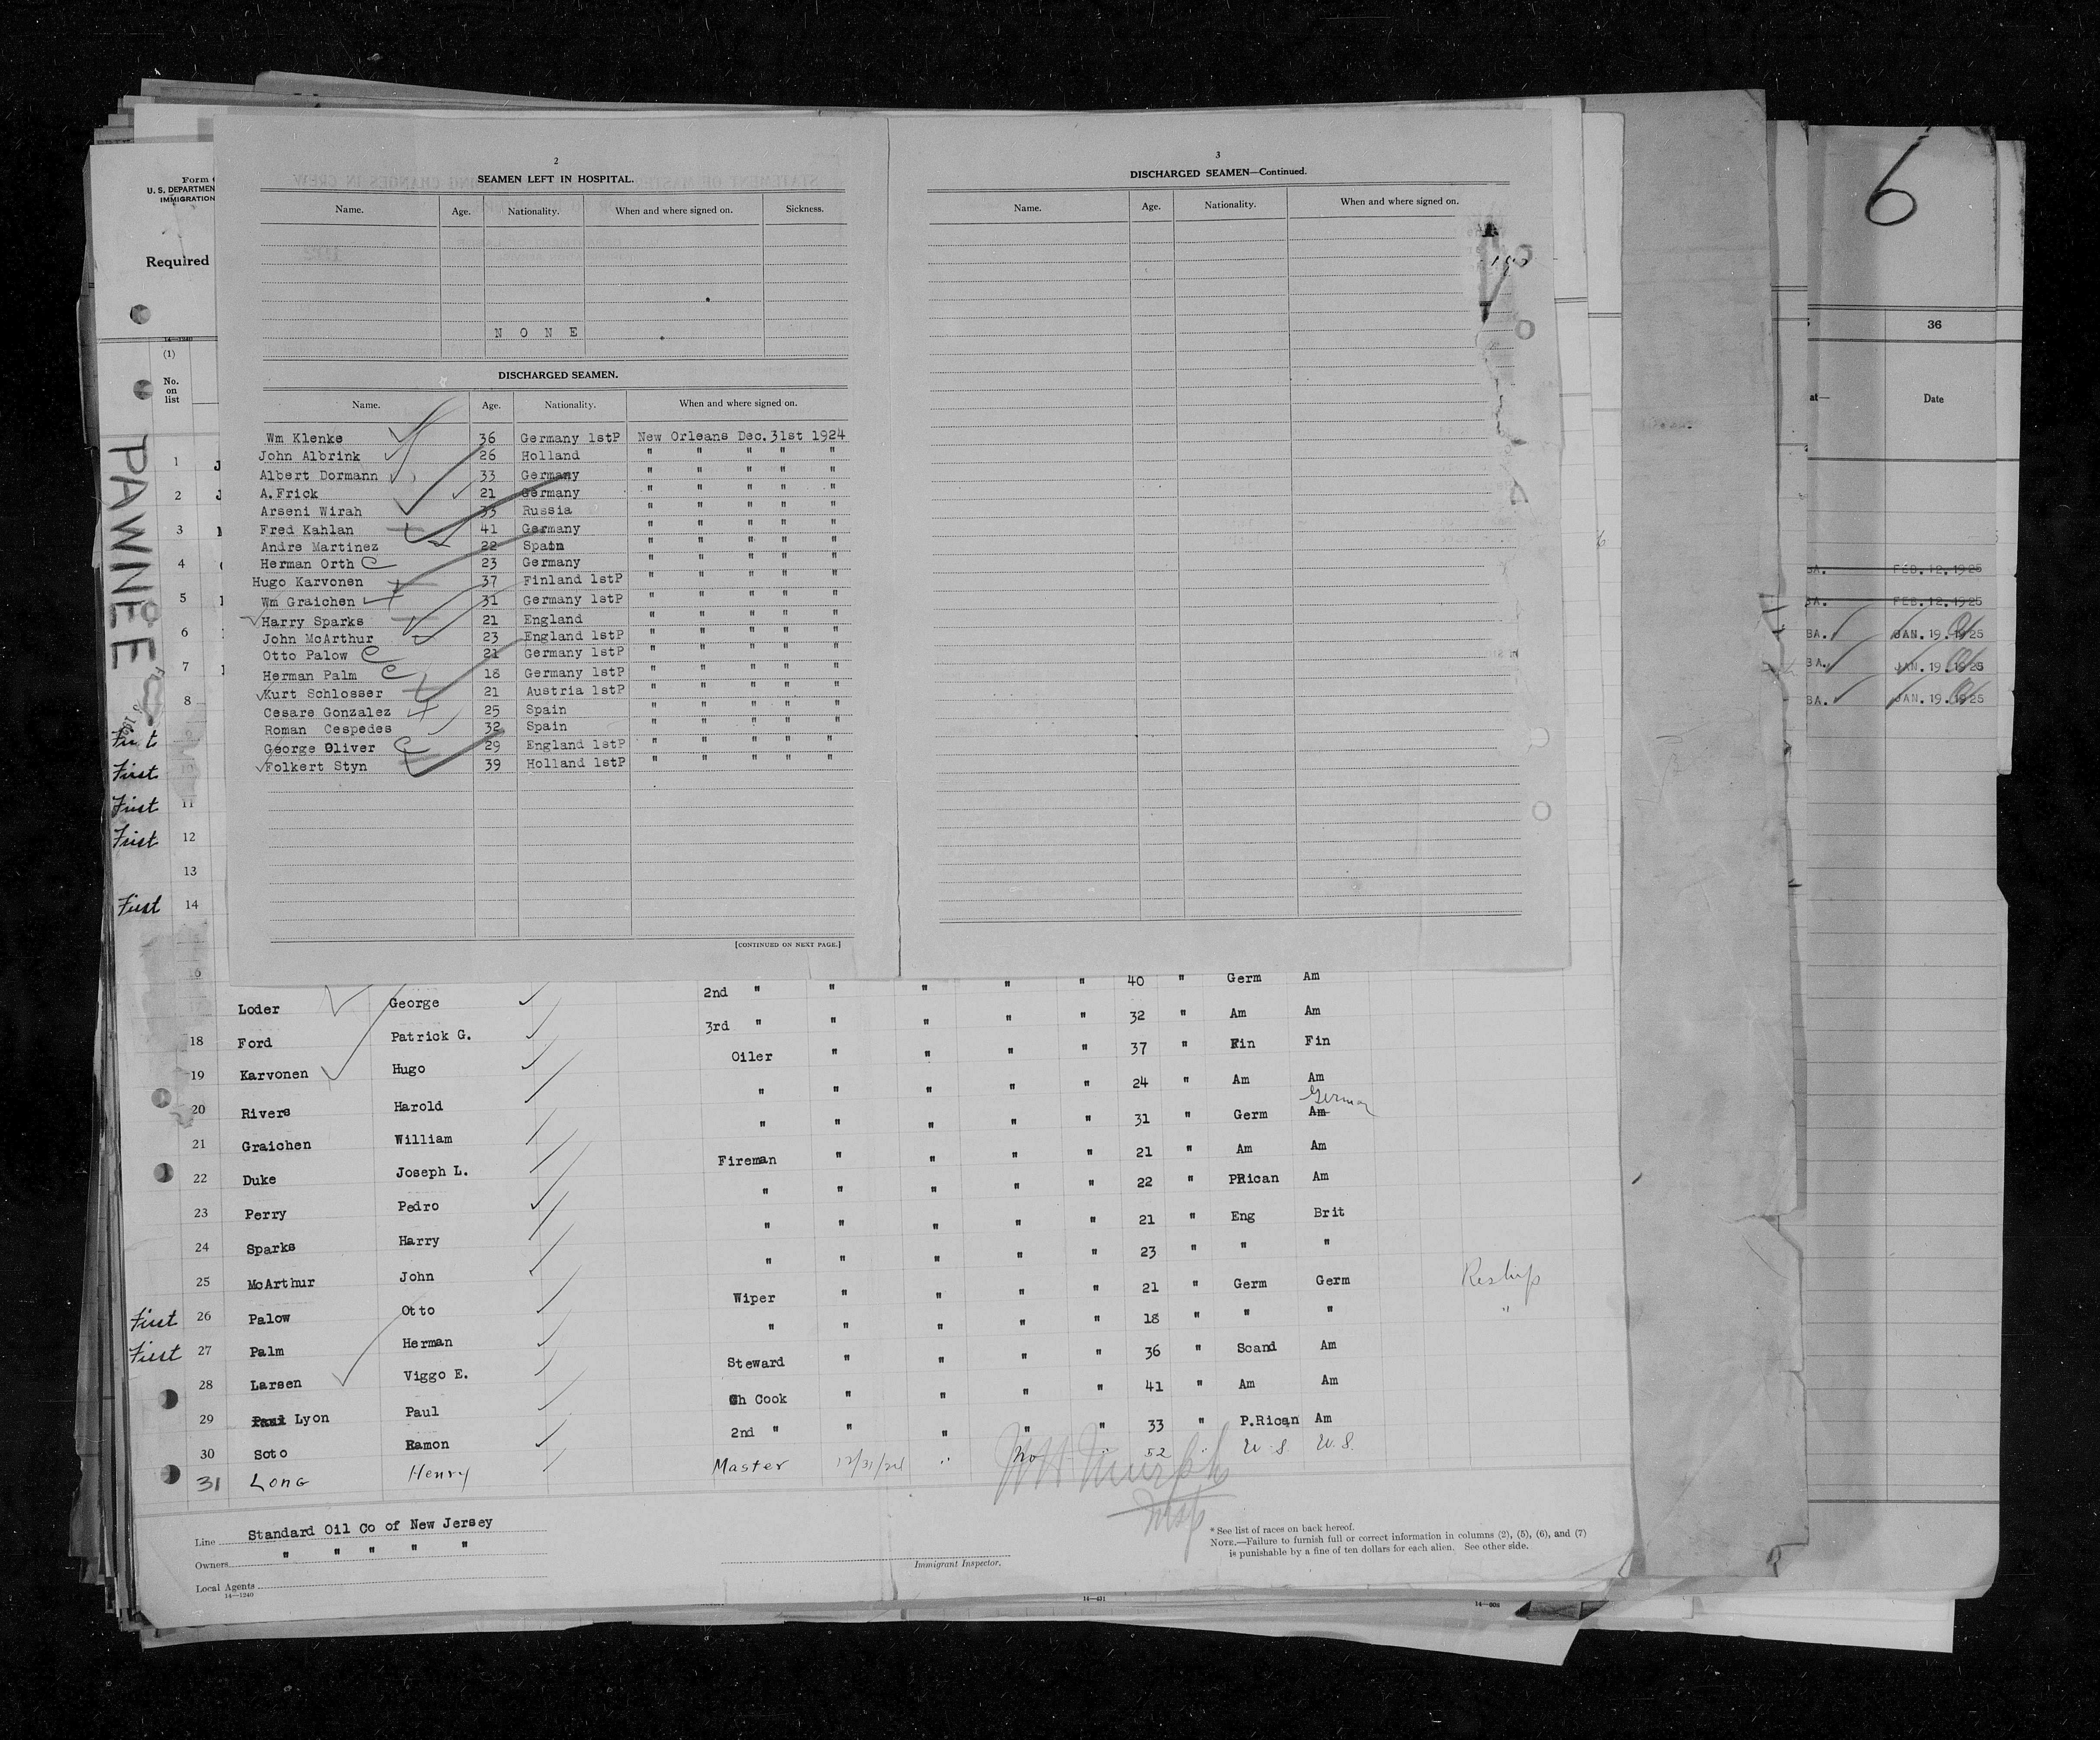 2
SEAMEN LEFT IN HOSPITAL.
Name. Age. Nationality. When and where signed on. Sickness.
N O N E
DISCHARGED SEAMEN.
Name. Age. Nationality. When and where signed on.
Wm Klenke 36 Germany 1stP New Orleans Dec. 31st 1924
John Albrink 26 Holland " " " " "
Albert Dormann 33 Germany " " " " "
A.Frick 21 Germany " " " " "
Arseni Wirah 33 Russia " " " " "
Fred Kahlan 41 Germany " " " " "
Andre Martinez 22 Spain " " " " "
Herman Orth C 23 Germany " " " " "
Hugo Karvonen 37 Finland 1stP " " " " "
Wm Graichen 31 Germany 1stP " " " " "
Harry Sparks 21 England " " " " "
John McArthur 23 England 1stP " " " " "
Otto Palow C 21 Germany 1stP " " " " "
Herman Palm C 18 Germany 1stP " " " " "
Kurt Schlosser 21 Austria 1stP " " " " "
Cesare Gonzalez 25 Spain " " " " "
Roman Cespedes 32 Spain " " " " "
George Oliver C 29 England 1stP " " " " "
Folkert Styn 39 Holland 1stP " " " " "
[CONTINUED ON NEXT PAGE.]
3
DISCHARGED SEAMEN—Continued.
Name. Age. Nationality. When and where signed on.
Form
U. S. DEPARTMEN
IMMIGRATION
Required
14—1240
(1)
No.
on
list
PAWNEE
1
2
3
4
5
6
7
8
First
First
First 11
First 12
13
First 14
16 40 " Germ Am
Loder George 2nd " " " " " 32 " Am Am
18 Ford Patrick G. 3rd " " " " " 37 " Fin Fin
19 Karvonen Hugo Oiler " " " " 24 " Am Am
20 Rivers Harold " " " " " 31 " Germ Am German
21 Graichen William " " " " " 21 " Am Am
22 Duke Joseph L. Fireman " " " " 22 " PRican Am
23 Perry Pedro " " " " " 21 " Eng Brit
24 Sparks Harry " " " " " 23 " " "
25 McArthur John " " " " " 21 " Germ Germ Reship
First 26 Palow Otto Wiper " " " " 18 " " " "
First 27 Palm Herman " " " " " 36 " Scand Am
28 Larsen Viggo E. Steward " " " " 41 " Am Am
29 Lyon Paul Ch Cook " " " " 33 " P.Rican Am
30 Soto Ramon 2nd " " " " "
31 Long Henry Master 12/31/24 " No " 52 " U.S. U.S.
W H Murph
Insp
Line Standard Oil Co of New Jersey
Owners " " " " "
Local Agents
14—1240
Immigrant Inspector.
* See list of races on back hereof.
NOTE.—Failure to furnish full or correct information in columns (2), (5), (6), and (7)
is punishable by a fine of ten dollars for each alien. See other side.
14—431
14—608
6
36
at— Date
BA. FEB. 12. 1925
BA. FEB. 12. 1925
BA. JAN. 19. 1925
BA. JAN. 19. 1925
BA. JAN. 19. 1925